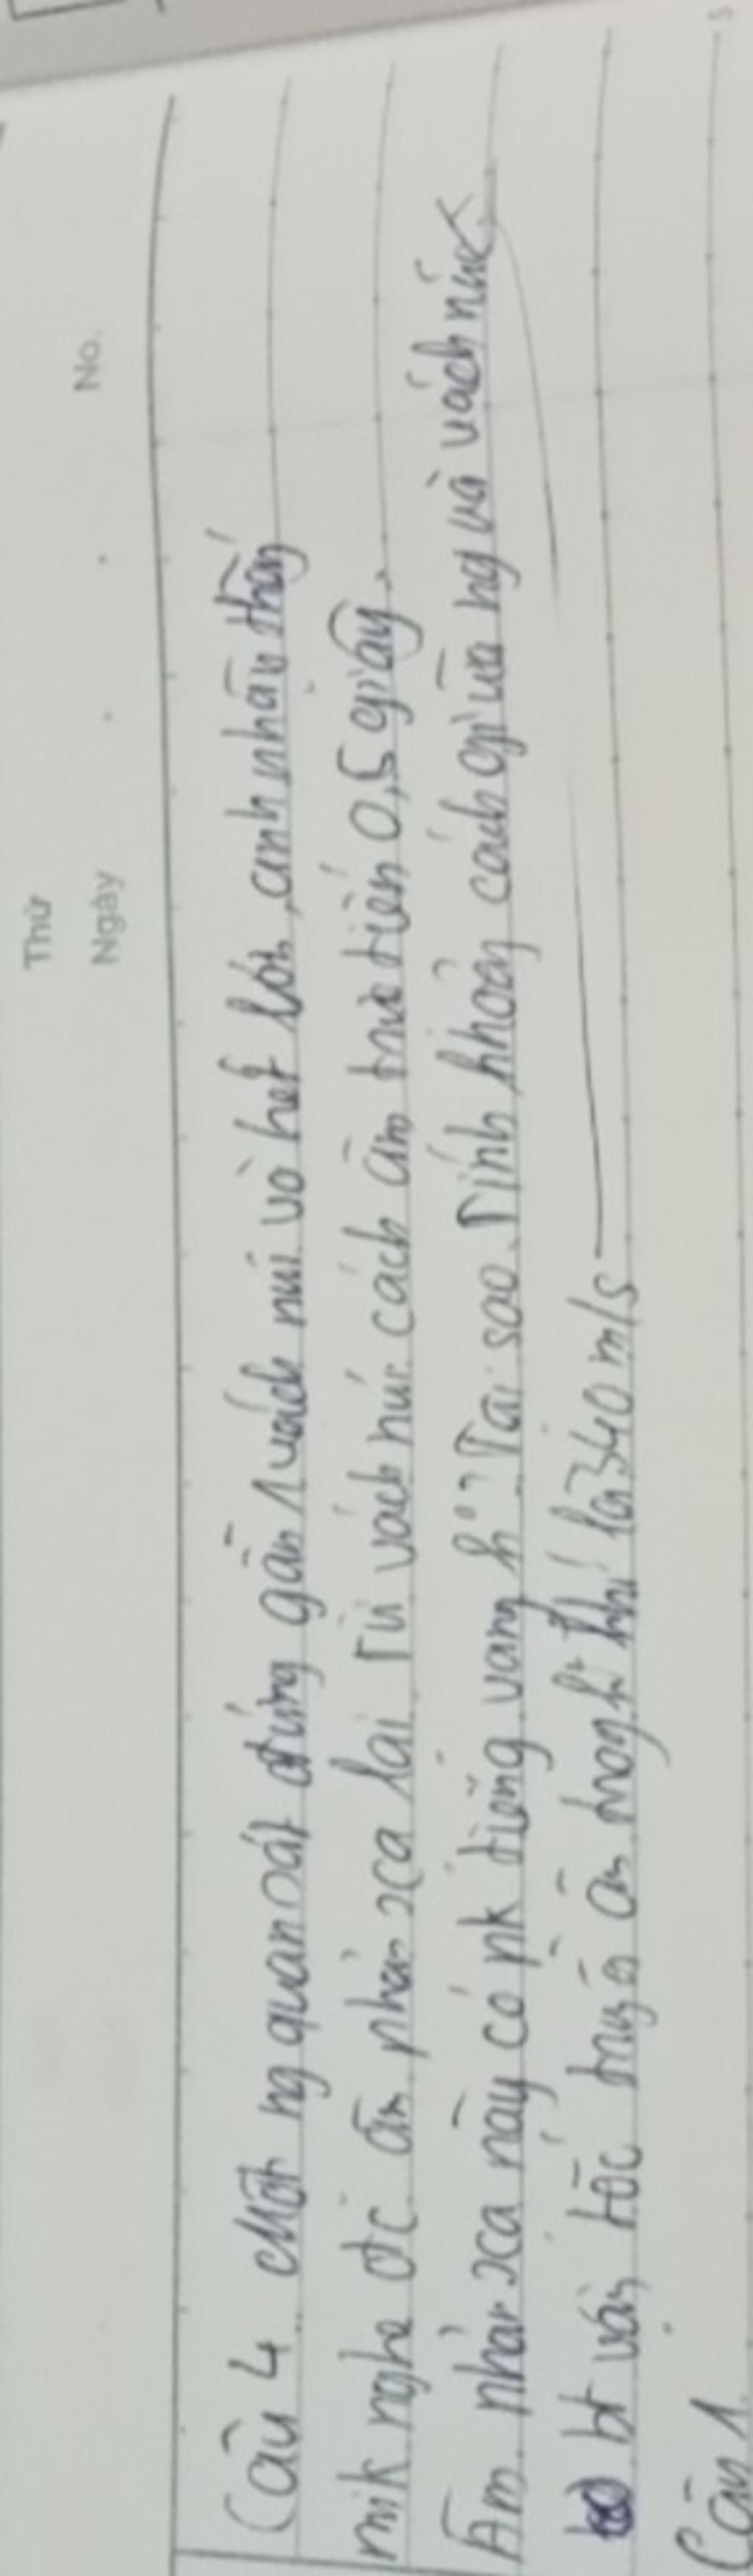 Thứ
Ngày
No.
Câu 4. Một ng quan sát đứng gần 1 vách núi và hét lớn, anh nhận thấy
mik nghe đc âm phản xạ lại từ vách núi cách âm trực tiếp 0,5 giây.
Âm phản xạ này có pk tiếng vang k? Tại sao. Tính khoảng cách giữa ng và vách núi
bt vận tốc truyền âm trong k khí là 340 m/s
Câu 1